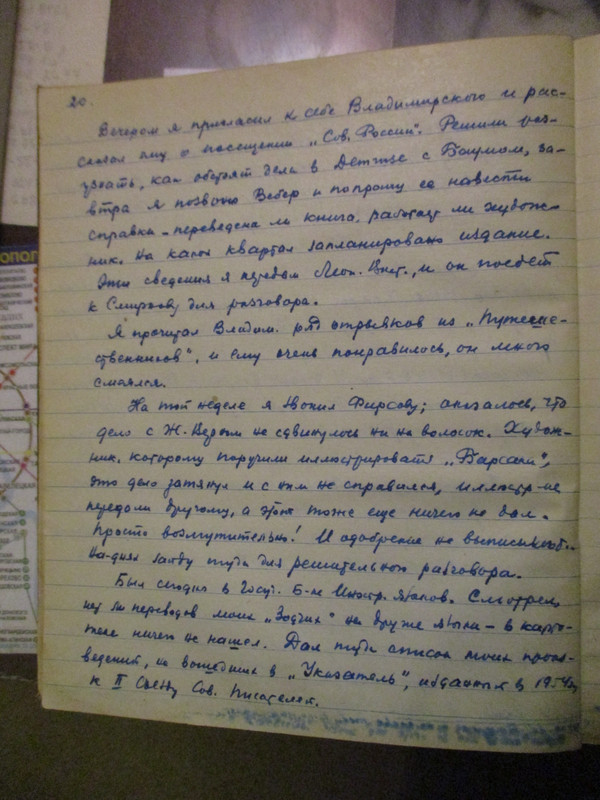 20.
Вечером я пригласил к себе Владимирского и рас-
сказал ему о посещении „Сов. России“. Решили раз-
узнать, как обстоят дела в Детгизе с Баумом, за-
втра я позвоню Вебер и попрошу ее навести
справки – переведена ли книга, работает ли худож-
ник. На какой квартал запланировано издание.
Эти сведения я передам Леон. Викт., и он поедет
к Смирнову для разговора.
Я прочитал Владим. ряд отрывков из „Путеше-
ственников“, и ему очень понравилось, он много
смеялся.
На той неделе я звонил Фирсову; оказалось, что
дело с Ж. Верном не сдвинулось ни на волосок. Худож-
ник, которому поручили иллюстрировать „Барсака“,
это дело затянул и с ним не справился, иллюстр-ие
передали другому, а этот тоже еще ничего не дал.
Просто возмутительно! И одобрение не выписывают.
На-днях зайду туда для решительного разговора.
Был сегодня в Госуд. Б-ке Иностр. языков. Смотрел,
нет ли переводов моих „Зодчих“ на другие языки – в карто-
теке ничего не нашел. Дал туда список моих произ-
ведений, не вошедших в „Указатель“, изданный в 1954 г.
к II Съезду Сов. Писателей.